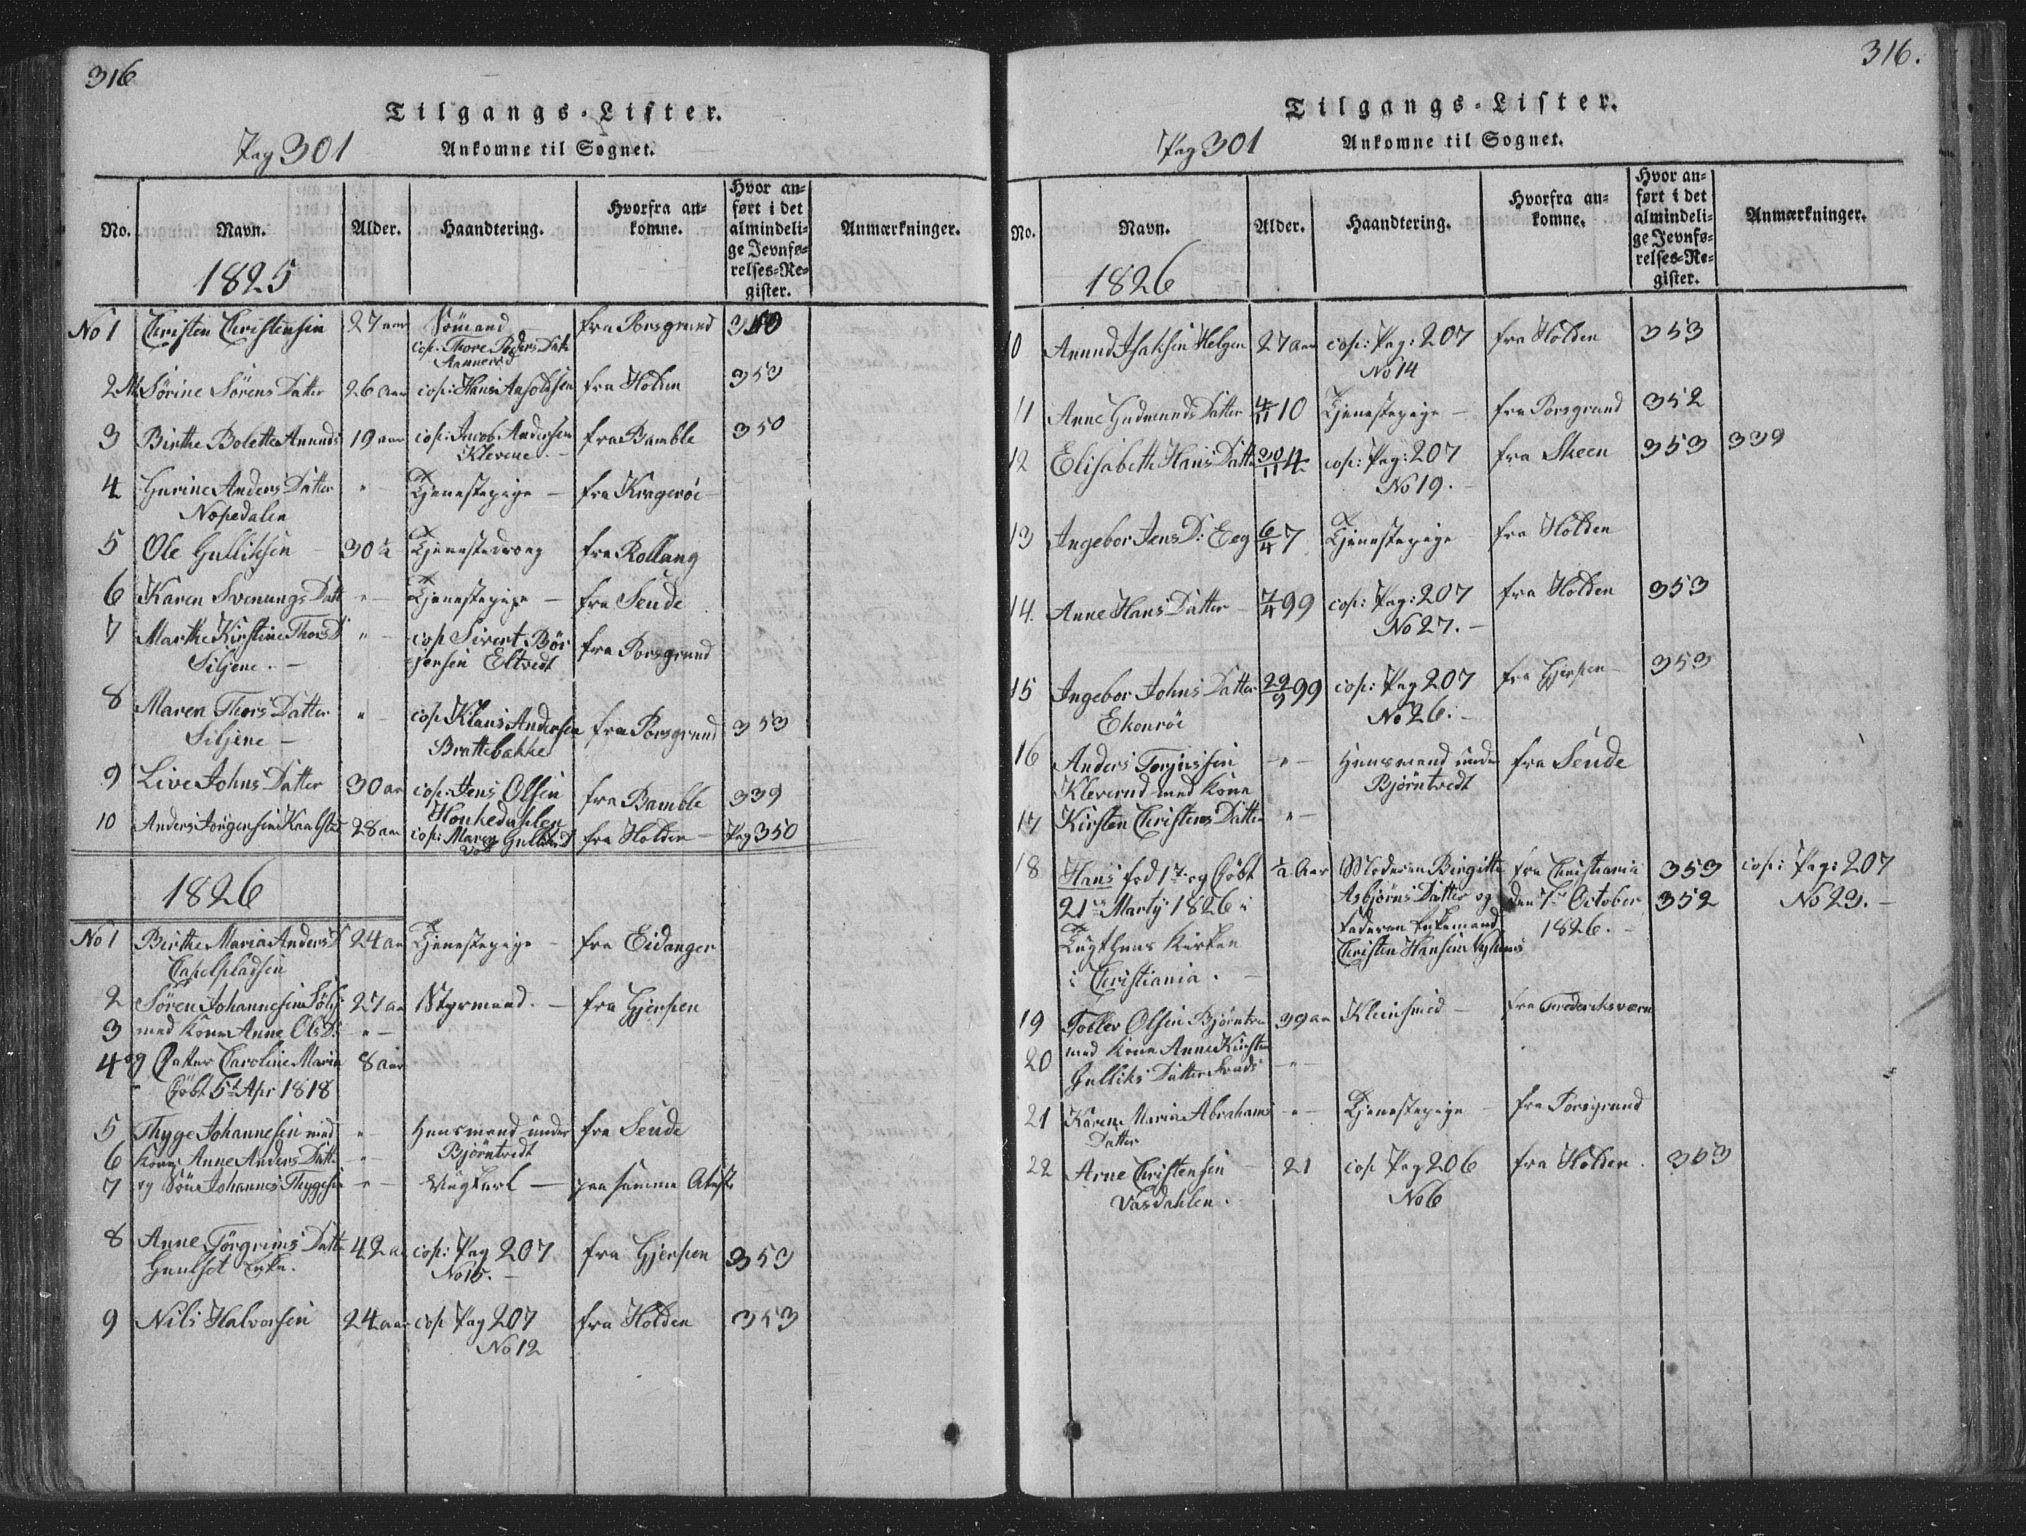 316
Tilgangs-Lister.
Pag 301
Ankomne til Sognet.
No.
Navn.
Alder.
Haandtering.
Hvorfra an-
komne.
Hvor an-
ført i det
almindeli-
ge Jevnfø-
relses-Re-
gister.
Anmærkninger.
1825
No 1 Christen Christensen 27 aar Sömand fra Porsgrund 350
cop: Thore Peders Datt
2 Sörine Sörens Datter 26 aar cop: Hans fra Holden 353
3 Birthe Bolette Amunds 19 aar cop: Jacob Andersen fra Bamble 350
Klevene.
4 Gurine Anders Datter " Tjenestepige fra Kragerøe
Nopedalen
5 Ole Gulliksen 30 a Tjenestedreng fra Rollaug
6 Karen Svenungs Datt " Tjenestepige fra Sende
7 Marthe Kirstine Thors D " cop Sivert Bör fra Porsgrund
Siljene. gersen Eltvedt
8 Maren Thors Datter " cop. Klaus Andersen fra Porsgrund 353
Siljene Brattebakke
9 Live Johns Datter 30 aa cop: Jens Olsen fra Bamble 339
Honkedahlen
10 Anders Jörgensen 28 aa cop: Maren Gulliks D fra Holden Pag 350
1826
No 1 Birthe Maria Anders D 24 aa Tjenestepige fra Eidanger
Capelpladsen
2 Sören Johannesen 27 aa Styrmand. fra Gjerpen
3 med Kone Anne Ols D: "
4 og Datter Caroline Maria 8 aar
döbt 5t Apr 1818
5 Thyge Johannesen med " Huusmand under fra Sende
6 Kone Anne Anders Datt " Björntvedt
7 og Sön Johannes Thygesen " Ungkarl paa samme
8 Anne Törgrims Datt 42 a cop: Pag 207 fra Gjerpen 353
Enke. No 15.
9 Nils Halvorsen 24 aar cop Pag 207 fra Holden 353
No 12
316.
Tilgangs-Lister.
Pag 301
Ankomne til Sognet.
No.
Navn.
Alder.
Haandtering.
Hvorfra an-
komne.
Hvor an-
ført i det
almindeli-
ge Jevnfø-
relses-Re-
gister.
Anmærkninger.
1826
10 Amund Isaksen Helgen 27 aar cop: Pag: 207 fra Holden 353
No 14
11 Anne Gudmunds Datter 4/11 10 Tjenestepige fra Porsgrund 352
12 Elisabeth Hans Datt 30/11 4 cop: Pag: 207 fra Skeen 353 339
No 19.
13 Ingebor Jens D: Eeg 6/4 7 Tjenestepige fra Holden
14. Anne Hans Datter 7/4 99 cop: Pag: 207 fra Holden 353
No 27.
15 Ingebor Johns Datter 29/9 99 cop: Pag 207 fra Gjerpen 353
Ekenröe No 26.
16 Anders " Huusmand under fra Sende
Kleverud med Kone Björntvedt
17 Kirsten Christens Datter "
18 Hans fød og döbt Aar Moderen Birgitte fra Christiania 353 cop: Pag: 207
21 Martij 1826 i Asbjörns Datter og den 7 October 352 No 23.
Tugthuus Kirken Faderen Enkemand 1826.
i Christiania. Christen Hansen
19 Tollev Olsen Björntve 39 aa Kleinsmed fra Frederiksværn
20 med Kone Anne Kirsten
Gulliks Datter "
21 Karen Maria Abrahams " Tjenestepige fra Porsgrund
Datter
22 Arne Christensen 21 cop Pag 206 fra Holden 353
Vasdahlen. No 6